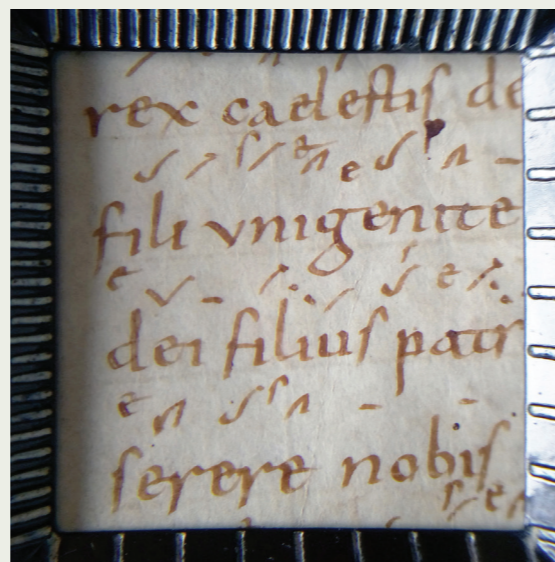 rex caelestis de
fili vnigenite
dei filius patr
serere nobis